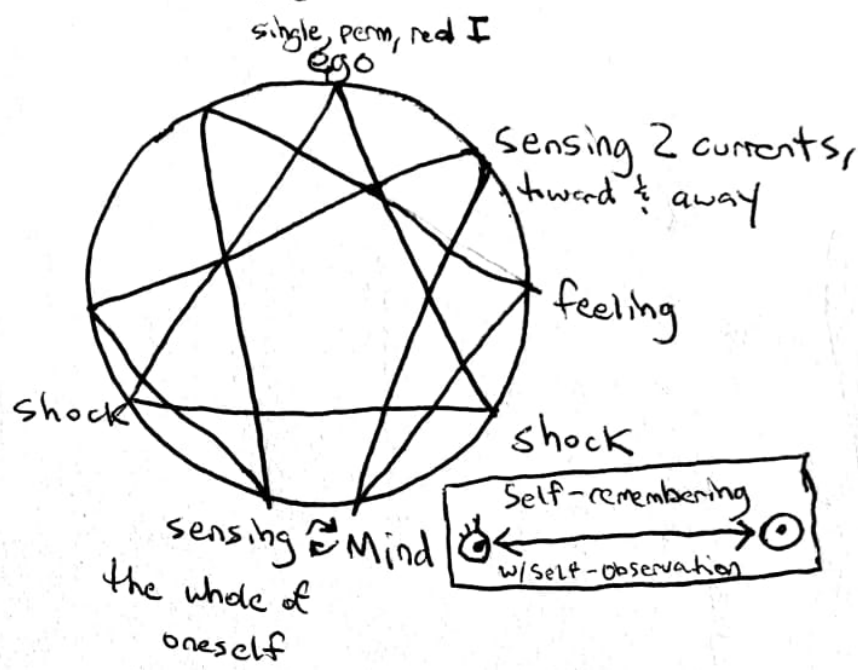 single, perm, red I
ego
sensing 2 currents,
toward & away
feeling
shock
shock
sensing
Mind
the whole of
oneself
Self-remembering
w/self-observation